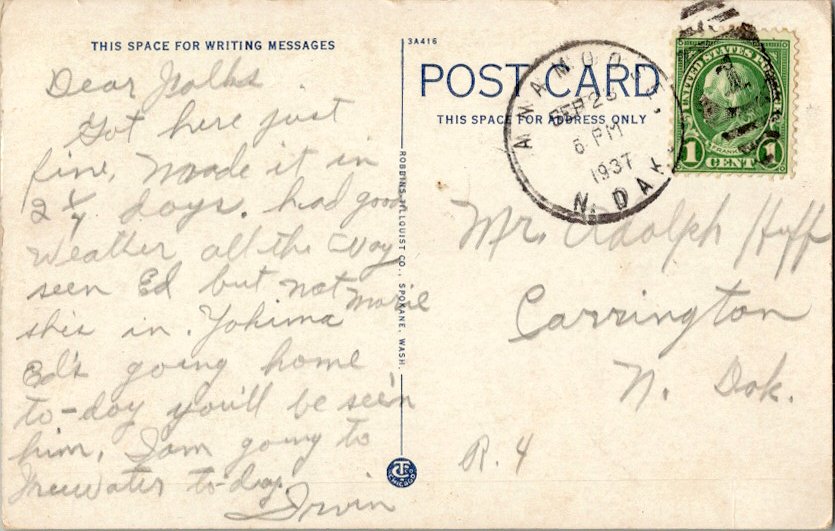 THIS SPACE FOR WRITING MESSAGES
Dear Folks
Got here just
fine, made it in
2 1/4 days. had good
weather all the way
seen Ed but not Marie
shes in. Yakima
Ed's going home
to-day you'll be see'n
him, I am going to
Freewater to-day.
Irvin
3A416
ROBBINS-TILLQUIST CO., SPOKANE, WASH.
CHICAGO
POST CARD
THIS SPACE FOR ADDRESS ONLY
ANAMOOSE
SEP 23
6 PM
1937
N. DAK.
UNITED STATES POSTAGE
1 CENT 1
Mr. Adolph Huff
Carrington
N. Dak.
R. 4